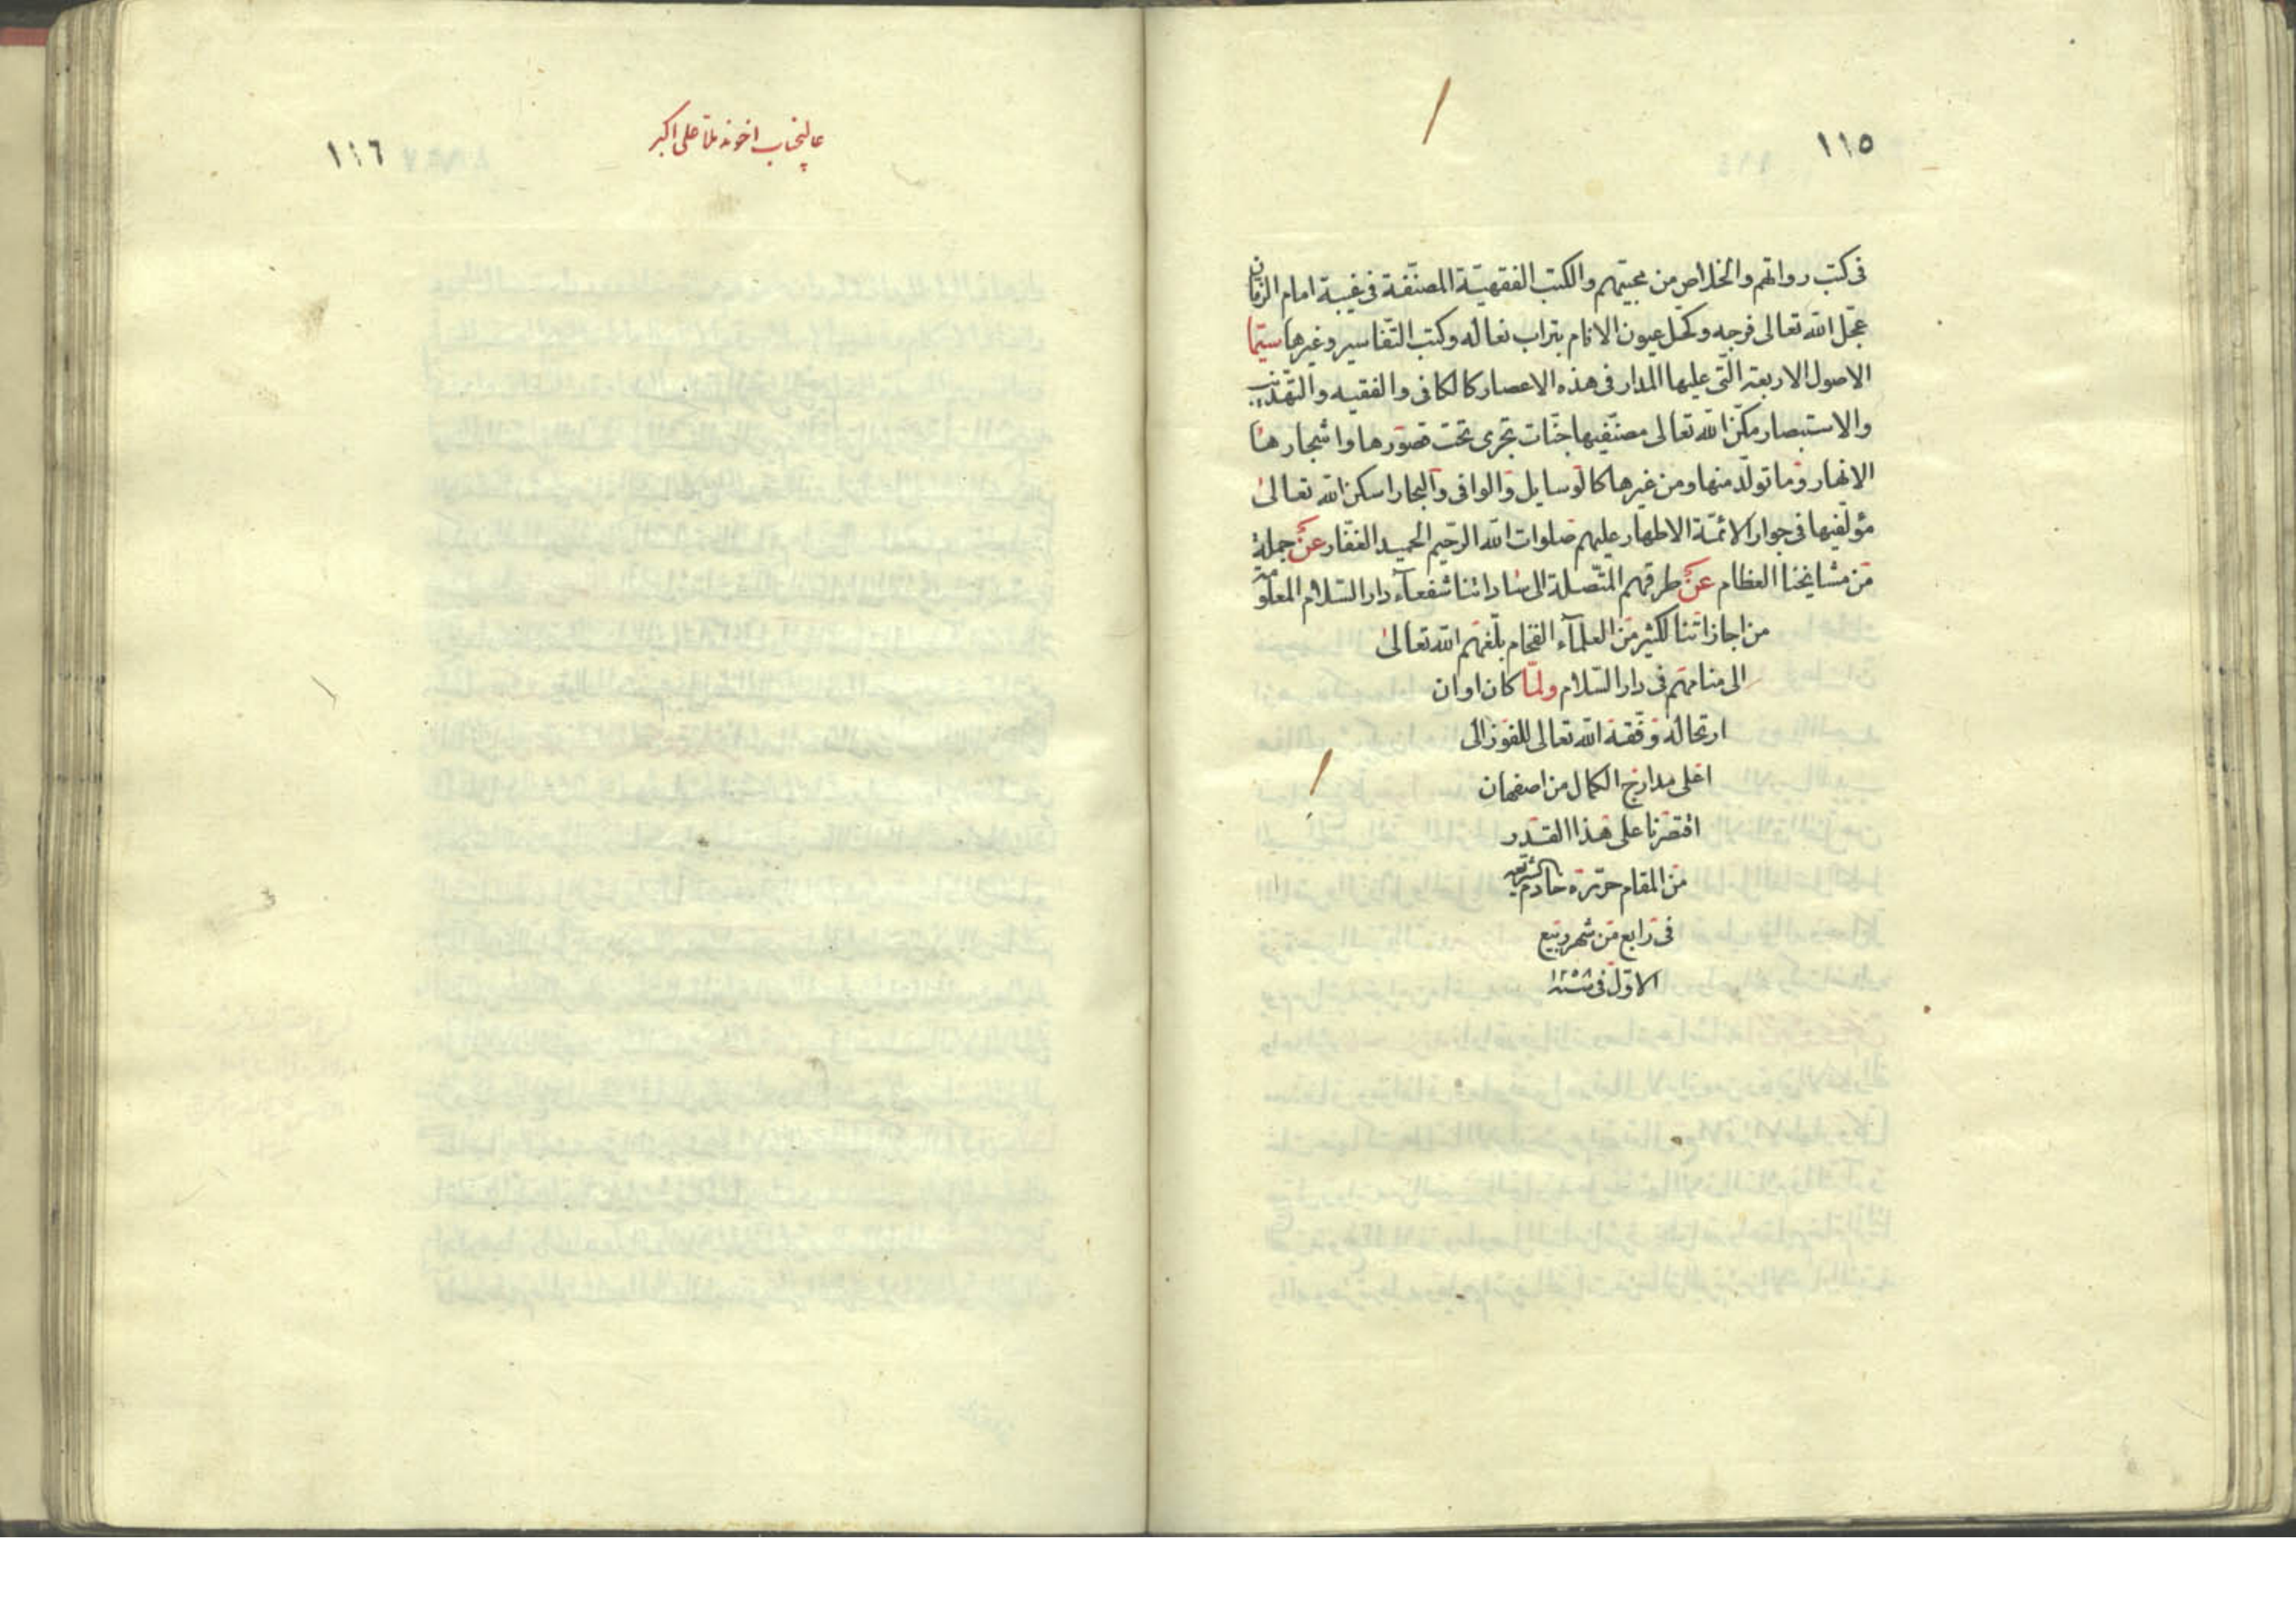 ١١٥
فى كتب رواتهم والخلاص من محبيهم والكتب الفقهيّة المصنّفة فى غيبة امام الزمان
عجّل الله تعالى فرجه وكحّل عيون الانام بتراب نعاله وكتب التّفاسير وغيرها سيّما
الاصول الاربعة الّتى عليها المدار فى هذه الاعصار كالكافى والفقيه والتهذيب
والاستبصار مكّن الله تعالى مصنّفيها جنّات تجرى تحت قصورها واشجارها
الانهار وما تولّد منها ومن غيرها كالوسايل والوافى والبحار اسكن الله تعالى
مؤلّفيها فى جوار الائمّة الاطهار عليهم صلوات الله الرّحيم الحميد الغفّار عن جملة
من مشايخنا العظام عن طرقهم المتّصلة الى ساداتنا شفعآء دار السّلام المعلومة
من اجازاتنا لكثير من العلمآء الفخام بلّغهم الله تعالى
الى منامهم فى دار السّلام ولمّا كان اوان
ارتحاله وفّقه الله تعالى للفوز الى
اعلى مدارج الكمال من اصفهان
اقتصرنا على هذا القدر
من المقام حرّره خادم الشريعة
فى رابع من شهر ربيع
الاوّل فى سنة ١٢٥٨
١١٦
عاليجناب اخوند ملا على اكبر